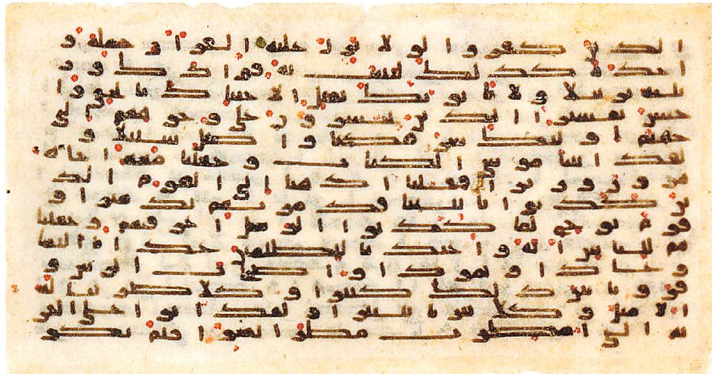 الذين كفروا لولا نزل عليه القران جملة و
احدة كذلك لنثبت به فوادك و ر
تلنه ترتيلا ولا ياتونك بمثل الا جئنك بالحق وا
حسن تفسيرا الذين يحشرون على وجوههم الى
جهنم اولئك شر مكانا واضل سبيلا و
لقد اتينا موسى الكتب وجعلنا معه اخاه
هرون وزيرا فقلنا اذهبا الى القوم الذ
ين كذبوا بايتنا فدمرنهم تدميرا و
قوم نوح لما كذبوا الرسل اغرقنهم وجعلنا
هم للناس اية واعتدنا للظلمين عذابا اليما
وعادا وثمودا واصحب الرس و
قرونا بين ذلك كثيرا وكلا ضربنا له
الامثل وكلا تبرنا تتبيرا ولقد اتوا على القر
ية التي امطرت مطر السوء افلم يكو